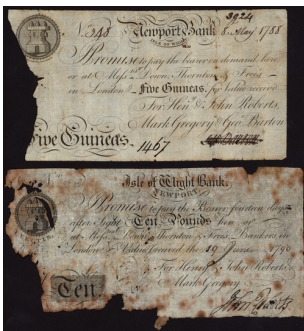 3924
No. 348 Newport Bank 8 May 1788
ISLE OF WIGHT
Promise to pay the bearer on demand here
or at Messrs. Down, Thornton & Free's
in London Five Guineas, for value received
For Henry & John Roberts,
Mark Gregory & Geo. Burton
Five Guineas.
1467
Isle of Wight Bank.
NEWPORT
Promise to pay the Bearer, fourteen days
after Sight Ten Pounds here or
at Messrs. Down, Thornton & Free's Bankers in
London Value received the 19 June 179
For Henry & John Roberts
Mark Gregory
Ten